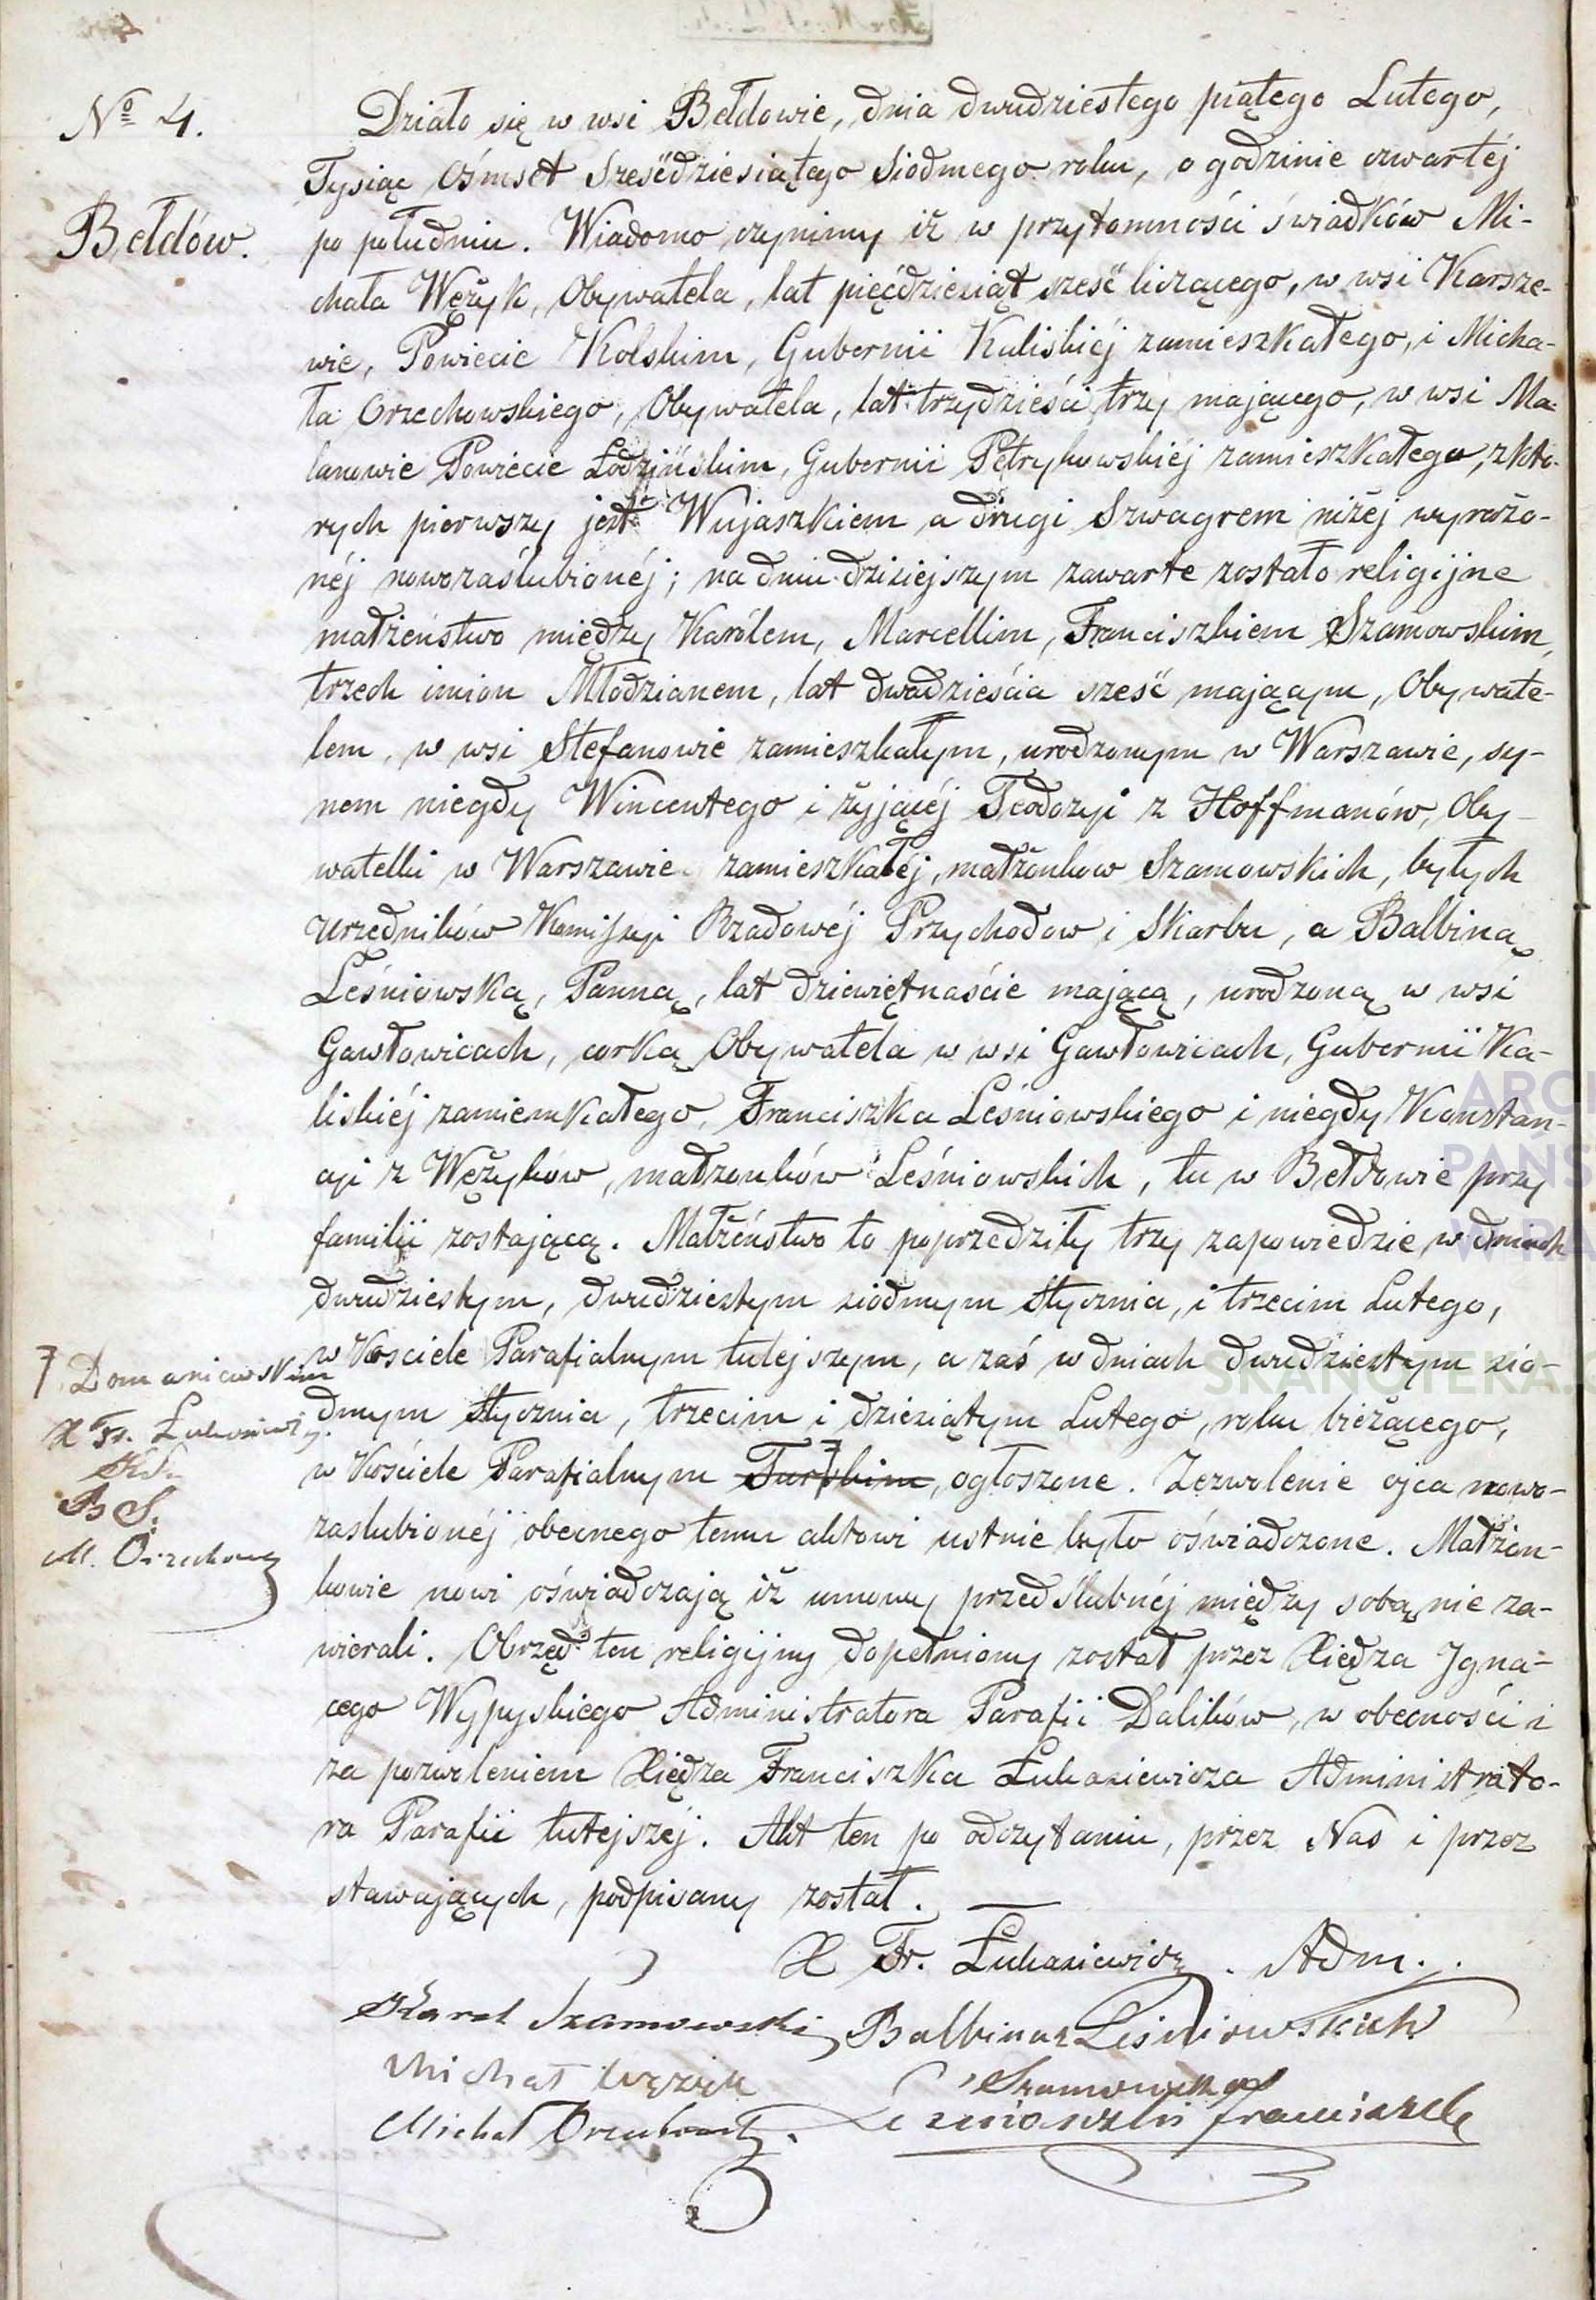 № 4.
Bełdów.
Działo się w wsi Bełdowie, dnia dwudziestego piątego Lutego,
Tysiąc Ośmset Sześćdziesiątego Siódmego roku, o godzinie czwartéj
po południu. Wiadomo czynimy iż w przytomności świadków Mi-
chała Wężyk, Obywatela, lat pięćdziesiąt sześć liczącego, w wsi Karsze-
wie, Powiecie Kolskim, Gubernii Kaliskiéj zamieszkałego, i Micha-
ła Orzechowskiego, Obywatela, lat trzydzieści trzy mającego, w wsi Ma-
lanowie Powiecie Łodzińskim, Gubernii Petrykowskiéj zamieszkałego, z któ-
rych pierwszy jest Wujaszkiem a drugi Szwagrem niżéj wyrażo-
néj nowozaślubionéj; na dniu dzisiejszym zawarte zostało religijne
małżeństwo między Karólem, Marcellim, Franciszkiem Szamowskim,
trzech imion Młodzianem, lat dwadzieścia sześć mającym, Obywate-
lem, w wsi Stefanowie zamieszkałym, urodzonym w Warszawie, sy-
nem niegdy Wincentego i żyjącéj Teodozyi z Hoffmanów, Oby-
watelki w Warszawie zamieszkałéj, małżonków Szamowskich, byłych
Urzędników Komissyi Rządowéj Przychodow i Skarbu, a Balbiną
Leśniowską, Panną, lat dziewiętnaście mającą, urodzoną w wsi
Gawłowicach, corką Obywatela w wsi Gawłowicach, Gubernii Ka-
liskiéj zamiemkałego, Franciszka Leśniowskiego i niegdy Konstan-
cyi z Wężyków, małżonków Leśniowskich, tu w Bełdowie przy
familii zostającą. Małżeństwo to poprzedziły trzy zapowiedzie w dniach
dwudziestym, dwudziestym siódmym Stycznia, i trzecim Lutego,
w Kosciele Parafialnym tutejszym, a zaś w dniach dwudziestym sió-
dmym Stycznia, trzecim i dziesiątym Lutego, roku bieżącego,
w Kościele Parafialnym Turskim, ogłoszone. Zezwolenie ojca nowo-
zaslubionéj obecnego temu aktowi ustnie było oświadczone. Małżon-
kowie nowi oświadczają iż umowy przedślubnéj między sobą nie za-
wierali. Obrzęd ten religijny dopełniony został przez Xiędza Igna-
cego Wypyskiego Administratora Parafii Dalików, w obecności i
za pozwoleniem Xiędza Franciszka Łukasiewicza Administrato-
ra Parafii tutejszéj. Akt ten po odczytaniu, przez Nas i przez
stawających, podpisany został.
Domaniewskim
X Fr. Łukasiewicz
B S.
M. Orzechowski
X Fr. Łukasiewicz. Adm.
Karol Szamowski Balbina z Leśniowskich
Michał Wężyk Szamowska
Michał Orzechowski. Leśniowski Franciszek
ARCH
PAŃS
W RA
SKANOTEKA.